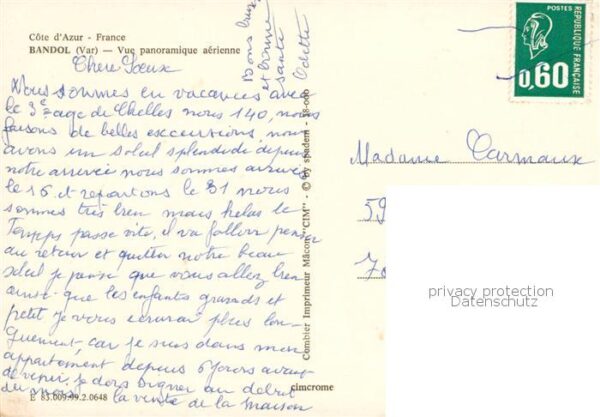 Côte d'Azur - France
BANDOL (Var) — Vue panoramique aérienne
Chère Soeux
Nous sommes en vacances avec
le 3e age de Chelles nous 140, nous
faisons de belles exccursions, nous
avons un soleil splendide depuis
notre arrivée nous sommes arrivés
le 16 et repartons le 31 nous
sommes très bien mais helas le
Temps passe vite, il va falloir penser
au retour et quitter notre beau
soleil je pense que vous allez bien
ainsi que les enfants grands et
petit je vous ecrirai plus lon-
guement car je suis dans mon
appartement depuis 6 jours avant
de venir, je dois signer au debut
du mois la vente de la maison
Bons baisers
et bonne
santé
Odette
E 83.009.99.2.0648
cimcrome
Combier Imprimeur Mâcon "CIM" - © by spadem - 18-000
POSTES
REPUBLIQUE FRANÇAISE
0,60
Madame Carmaux
59
70
privacy protection
Datenschutz